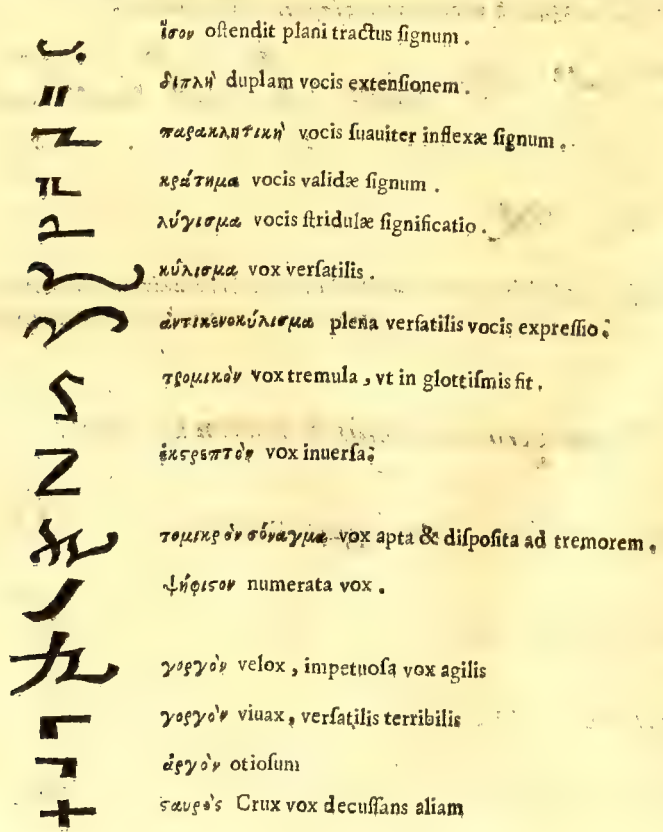 ἴσον oſtendit plani tractus ſignum.
διπλὴ duplam vocis extenſionem.
παρακλητικὴ vocis ſuauiter inflexæ ſignum.
κράτημα vocis validæ ſignum.
λύγισμα vocis ſtridulæ ſignificatio.
κύλισμα vox verſatilis.
ἀντικενοκύλισμα plena verſatilis vocis expreſſio;
τρομικὸν vox tremula, vt in glottiſmis fit,
ἐκστρεπτὸν vox inuerſa;
τομικρὸν σύναγμα vox apta & diſpoſita ad tremorem.
ψήφιστον numerata vox.
γοργὸν velox, impetuoſa vox agilis
γοργὸν viuax, verſatilis terribilis
ἀργὸν otioſum
σαυρὸς Crux vox decuſſans aliam